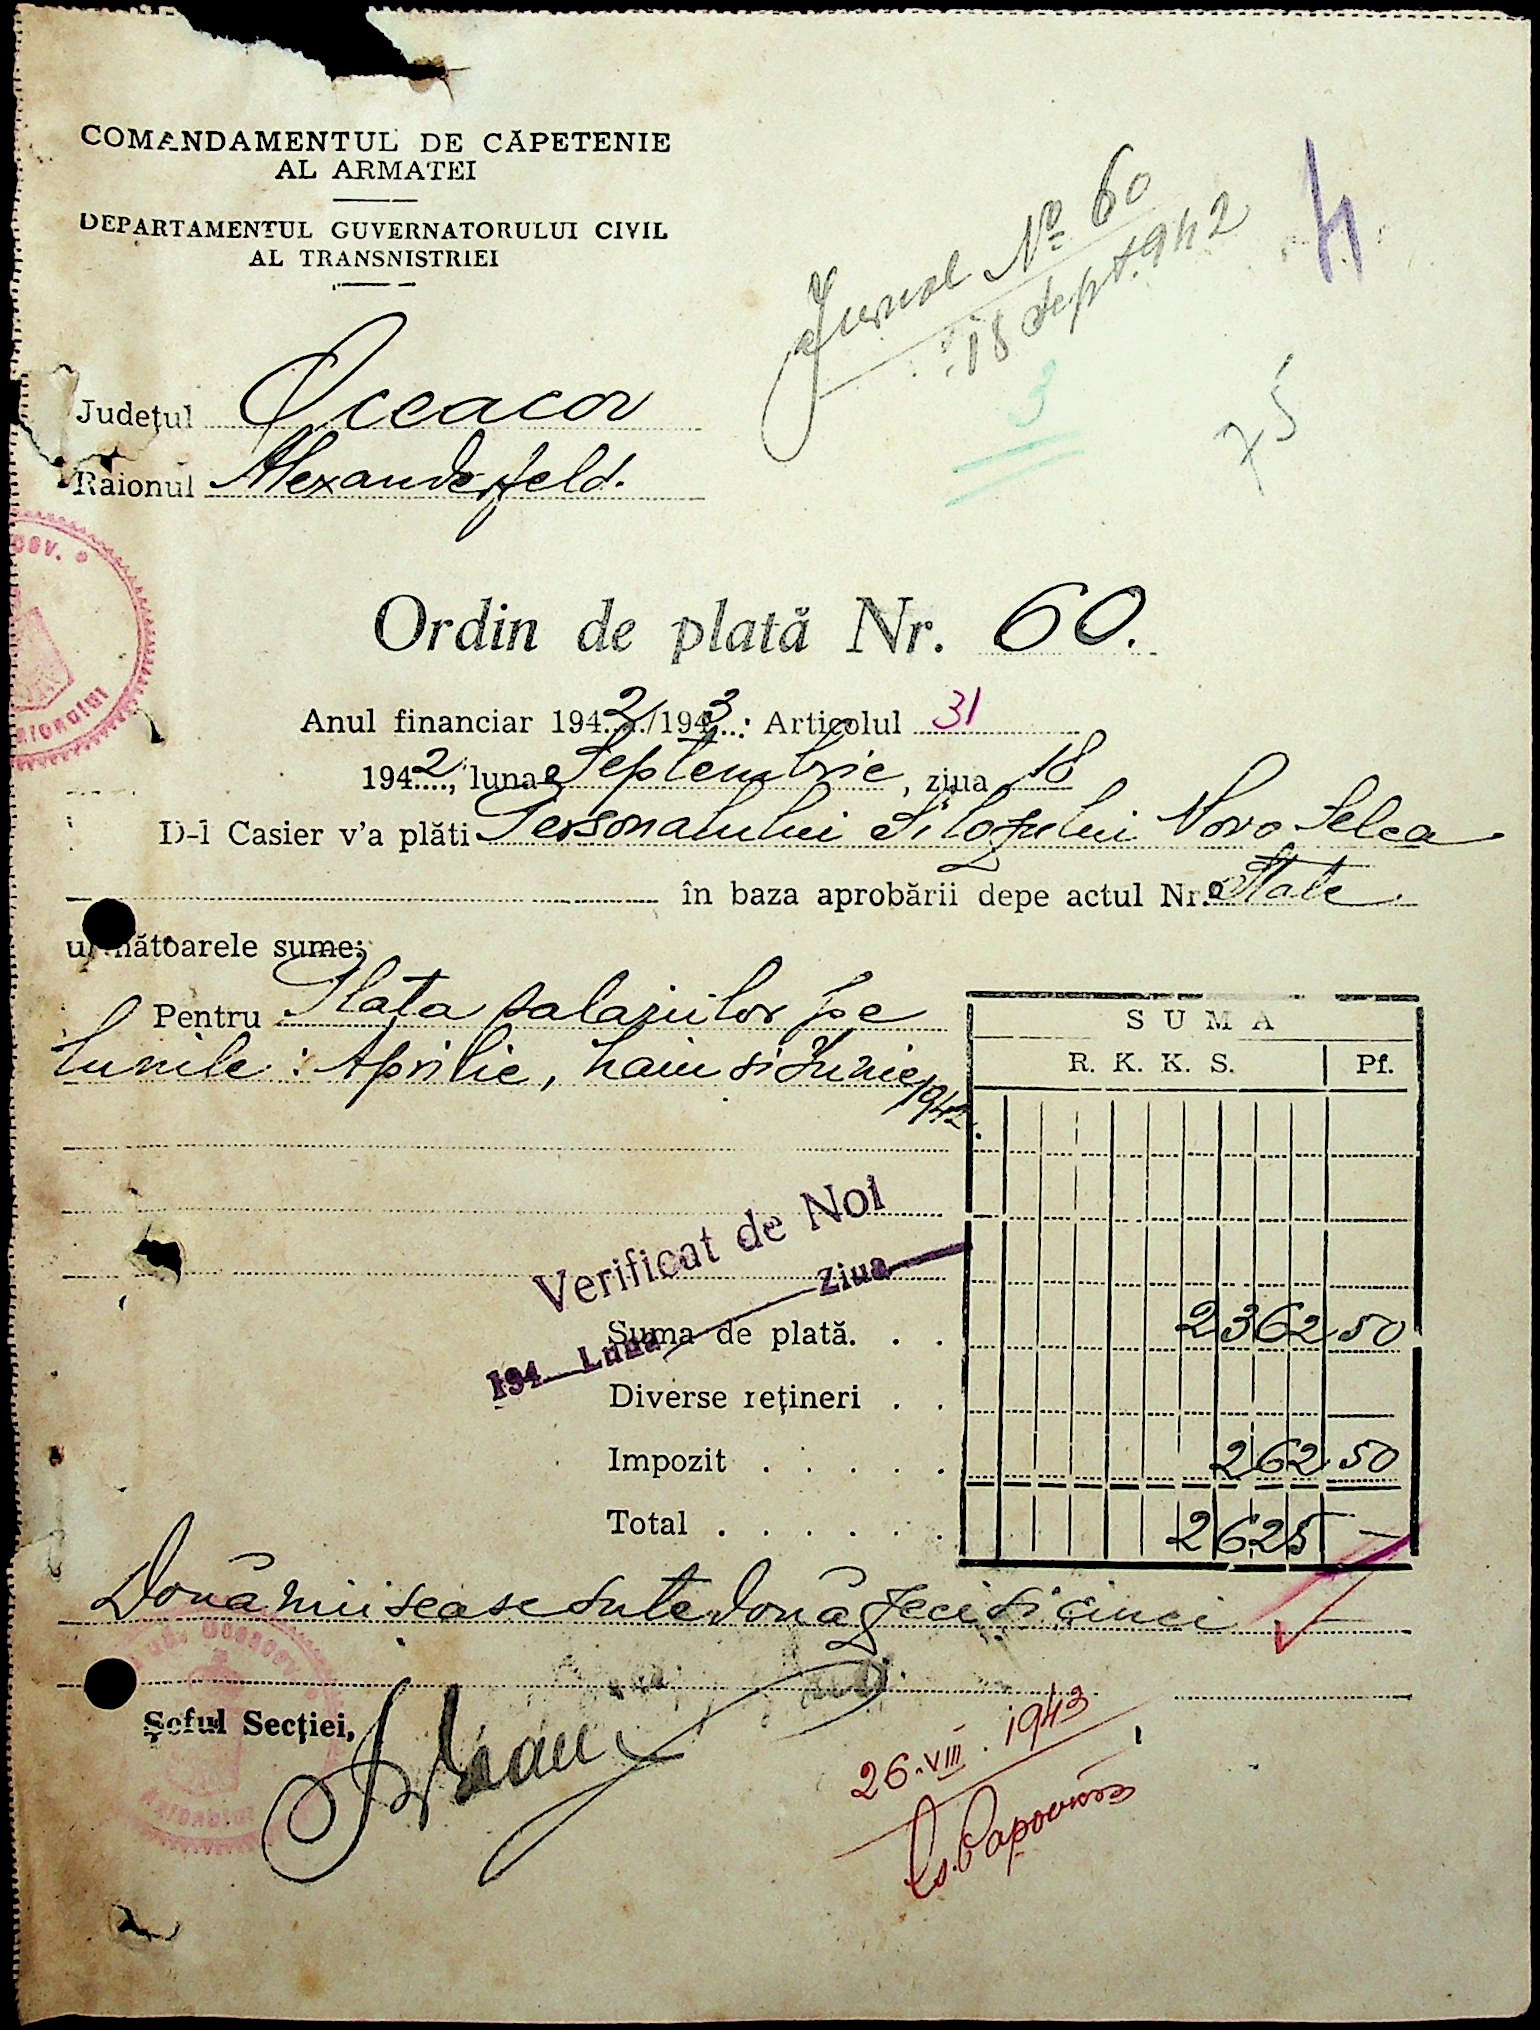 COMANDAMENTUL DE CĂPETENIE
AL ARMATEI
DEPARTAMENTUL GUVERNATORULUI CIVIL
AL TRANSNISTRIEI
Jurnal № 60
18 Sept. 942
4
3
75
Județul Oceacov
Raionul Alexanderfeld.
Ordin de plată Nr. 60.
Anul financiar 1942/1943: Articolul 31
1942, luna Septembrie, ziua 18
D-l Casier v'a plăti Personalului Silozului Novo Selca
în baza aprobării depe actul Nr. State
următoarele sume:
Pentru Plata salariilor pe
lunile: Aprilie, Maiu și Iunie 1942.
SUMA
R. K. K. S. Pf.
Verificat de Noi
194 Luna Ziua
Suma de plată. . . 2362 50
Diverse rețineri . . —
Impozit . . . . . 262 50
Total . . . . . . 2625 —
Două mii șease sute două zeci și cinci
Șeful Secției,
26.VIII.1943